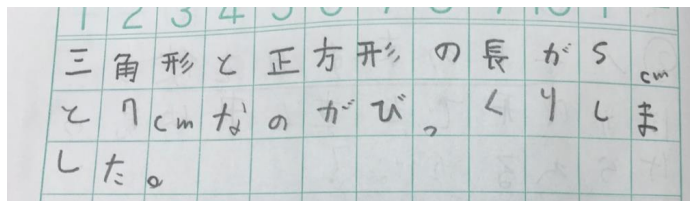 三角形と正方形の長が5cm
と7cmなのがびっくりしま
した。